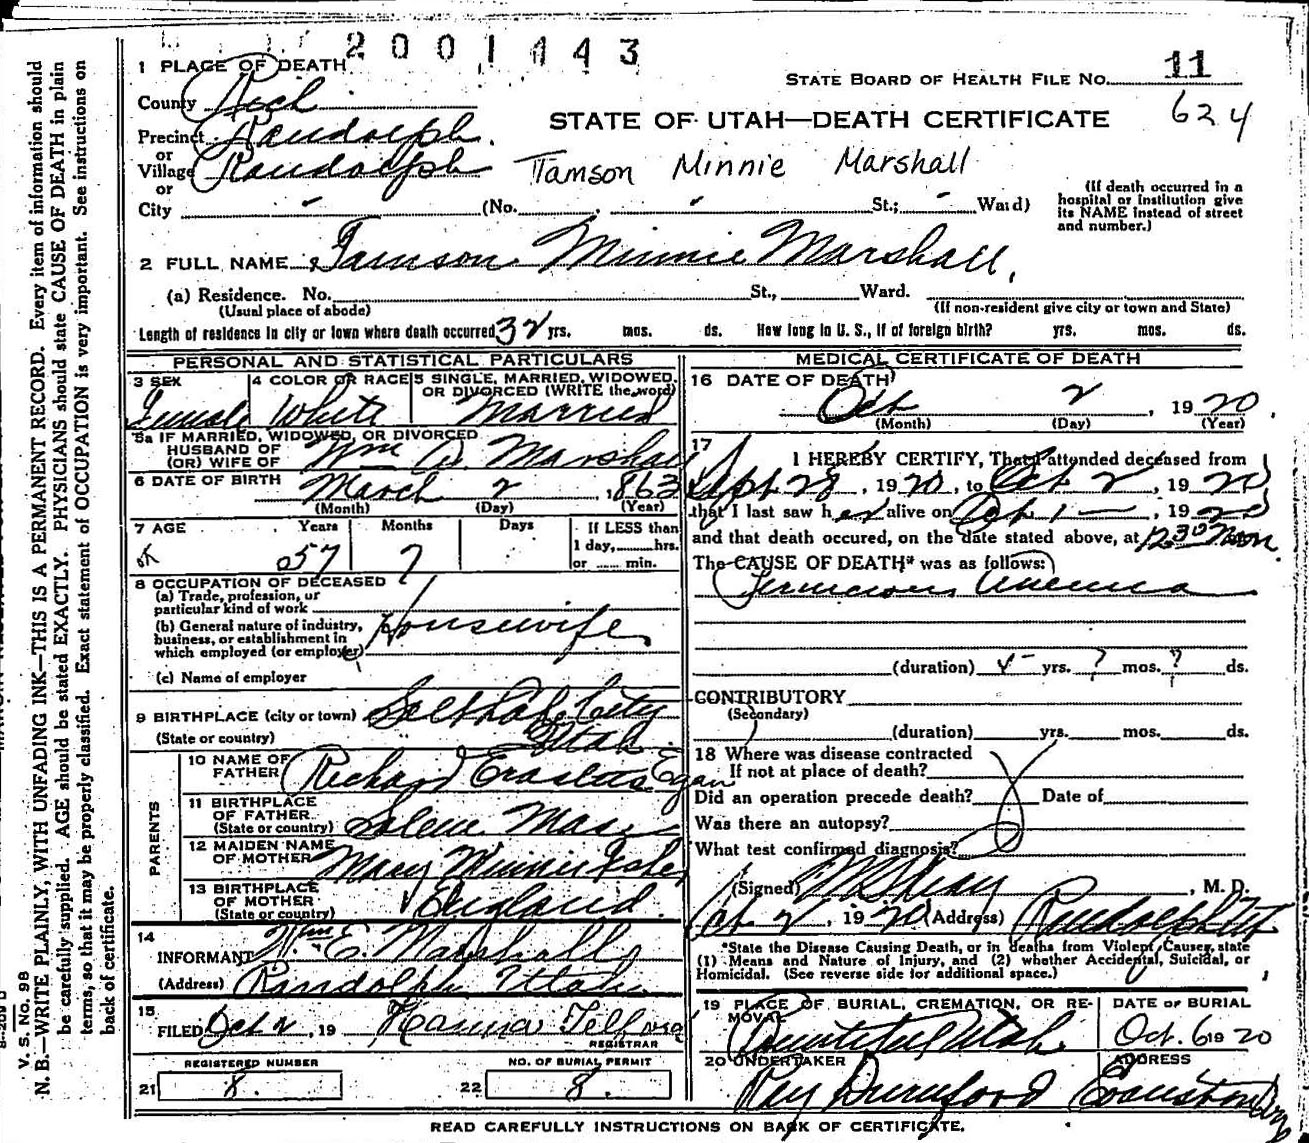 2001443
1 PLACE OF DEATH
STATE BOARD OF HEALTH FILE NO. 11
County Rich
624
STATE OF UTAH—DEATH CERTIFICATE
Precinct Randolph
or
Village Randolph
Tamson Minnie Marshall
or
City - (No. - St.; - Ward)
(If death occurred in a hospital or institution give its NAME instead of street and number.)
2 FULL NAME Tamson Minnie Marshall
(a) Residence. No. St., Ward.
(Usual place of abode)
(If non-resident give city or town and State)
Length of residence in city or town where death occurred 32 yrs. mos. ds. How long in U. S., if of foreign birth? yrs. mos. ds.
PERSONAL AND STATISTICAL PARTICULARS
3 SEX
Female
4 COLOR OR RACE
White
5 SINGLE, MARRIED, WIDOWED, OR DIVORCED (WRITE the word)
Married
5a IF MARRIED, WIDOWED, OR DIVORCED
HUSBAND OF
(OR) WIFE OF
Wm Marshall
6 DATE OF BIRTH
March 2, 1863
(Month) (Day) (Year)
7 AGE
Years Months Days
57 7
If LESS than
1 day, hrs.
or min.
8 OCCUPATION OF DECEASED
(a) Trade, profession, or
particular kind of work
(b) General nature of industry,
business, or establishment in
which employed (or employer)
Housewife
(c) Name of employer
9 BIRTHPLACE (city or town)
(State or country)
Salt Lake City
Utah
PARENTS
10 NAME OF FATHER
Richard Erastus Egan
11 BIRTHPLACE OF FATHER
(State or country)
Salem Mass
12 MAIDEN NAME OF MOTHER
Mary Minnie Fisher
13 BIRTHPLACE OF MOTHER
(State or country)
England
14
INFORMANT Wm E. Marshall
(Address) Randolph Utah
15
FILED Oct 2, 19 Hanna Telford
REGISTRAR
REGISTERED NUMBER
21 8.
NO. OF BURIAL PERMIT
22 8.
MEDICAL CERTIFICATE OF DEATH
16 DATE OF DEATH
Oct 2, 1920
(Month) (Day) (Year)
17
I HEREBY CERTIFY, That I attended deceased from
Sept 28, 1920, to Oct 2, 1920
that I last saw her alive on Oct 1, 1920
and that death occured, on the date stated above, at 12 30 Noon
The CAUSE OF DEATH* was as follows:
Pernicious Anemia
(duration) yrs. ? mos. ? ds.
CONTRIBUTORY
(Secondary)
(duration) yrs. mos. ds.
18 Where was disease contracted
If not at place of death?
Did an operation precede death? Date of
Was there an autopsy?
What test confirmed diagnosis?
(Signed) , M. D.
Oct 2, 1920 (Address) Randolph Utah
*State the Disease Causing Death, or in deaths from Violent Causes, state
(1) Means and Nature of Injury, and (2) whether Accidental, Suicidal, or
Homicidal. (See reverse side for additional space.)
19 PLACE OF BURIAL, CREMATION, OR REMOVAL
Bountiful Utah
DATE OF BURIAL
Oct. 6 1920
20 UNDERTAKER
Ray Durnford
ADDRESS
Evanston Wyo
READ CAREFULLY INSTRUCTIONS ON BACK OF CERTIFICATE.
V. S. No. 98
N. B.—WRITE PLAINLY, WITH UNFADING INK—THIS IS A PERMANENT RECORD. Every item of information should
be carefully supplied. AGE should be stated EXACTLY. PHYSICIANS should state CAUSE OF DEATH in plain
terms, so that it may be properly classified. Exact statement of OCCUPATION is very important. See instructions on
back of certificate.